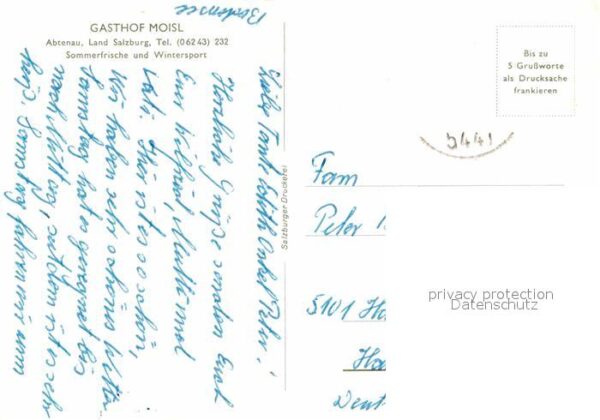 GASTHOF MOISL
Abtenau, Land Salzburg, Tel. (0 62 43) 232
Sommerfrische und Wintersport
Bis zu
5 Grußworte
als Drucksache
frankieren
5441
Salzburger Druckerei
Liebe Tante Edith Onkel Peter!
Herzliche Grüße senden Euch
Eure Wilfried, Mutti und
Vati. Hier ist es so schön,
Wir haben sehr schönes Wetter
Samstag hat es geregnet bis
nach Mittag, seitdem ist es sehr
Samstag fahren wir zum
Bodensee
Fam
Peter
5101 Ha
Deut
privacy protection
Datenschutz